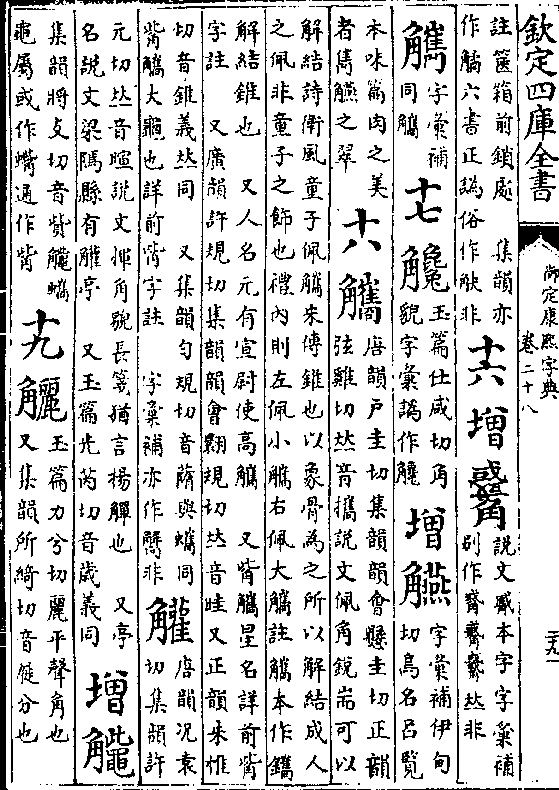 欽定四庫全書
御定康熙字典
卷二十八
二十九
註篋箱前鎖處 集韻亦
作觿六書正譌俗作觖非
十六
增
說文觱本字字彙補
別作
𠀤非
觹
字彙補
同觿
十七
毚
玉篇仕咸切角
貌字彙譌作
增
觾
字彙補伊甸
切鳥名呂覽
本味篇肉之美
者雋觾之翠
十八
觿
唐韻戸圭切集韻韻會懸圭切正韻
弦雞切𠀤音攜說文佩角銳耑可以
解結詩衛風童子佩觿朱傳錐也以象骨為之所以解結成人
之佩非童子之飾也禮內則左佩小觿右佩大觿註觿本作鑴
解結錐也 又人名元有宣尉使高觿 又觜觿星名詳前觜
字註 又廣韻許規切集韻韻會翾規切𠀤音眭又正韻朱惟
切音錐義𠀤同 又集韻勻規切音蓆與蠵同
觜觿大龜也詳前觜字註 字彙補亦作
非
䚭
唐韻况袁
切集韻許
元切𠀤音暄說文揮角貌長箋猶言揚觶也 又亭
名說文梁隔縣有䚭亭 又玉篇光芮切音歲義同
增
集韻將支切音貲
蠵
龜屬或作蠵通作觜
十九
䚕
玉篇力兮切麗平聲角也
又集韻所綺切音躧分也